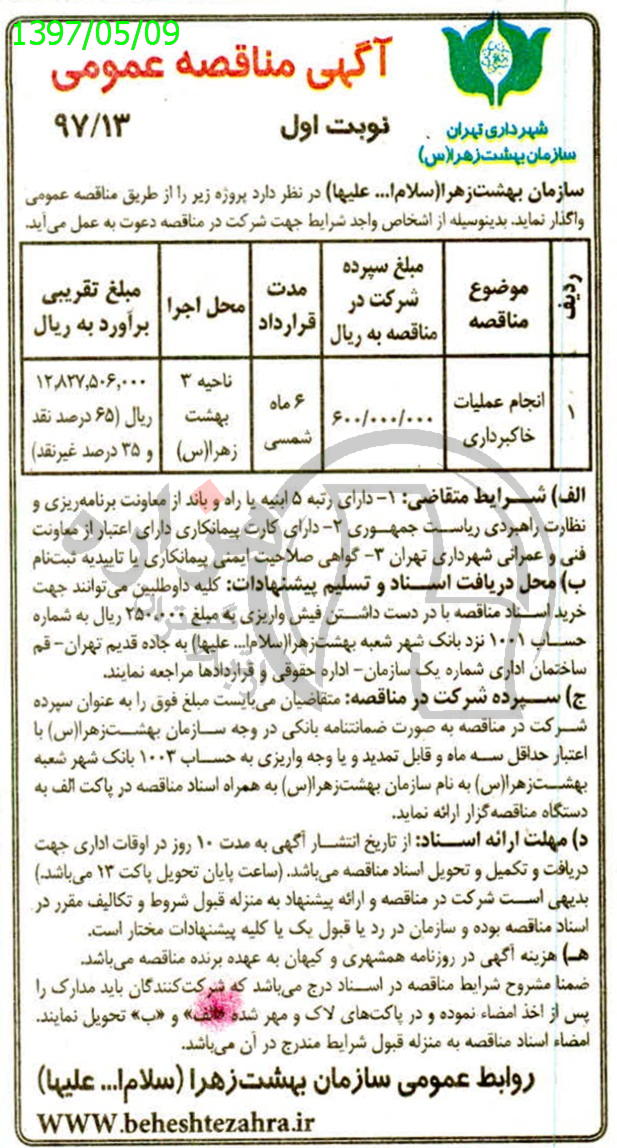 1397/05/09
آگهی مناقصه عمومی
نوبت اول ۹۷/۱۳
شهرداری تهران
سازمان بهشت‌زهرا(س)
سازمان بهشت‌زهرا(سلام‌ا... علیها) در نظر دارد پروژه زیر را از طریق مناقصه عمومی
واگذار نماید. بدینوسیله از اشخاص واجد شرایط جهت شرکت در مناقصه دعوت به عمل می‌آید.
ردیف
موضوع مناقصه
مبلغ سپرده شرکت در مناقصه به ریال
مدت قرارداد
محل اجرا
مبلغ تقریبی برآورد به ریال
۱
انجام عملیات خاکبرداری
۶۰۰/۰۰۰/۰۰۰
۶ ماه شمسی
ناحیه ۳ بهشت زهرا(س)
۱۲,۸۲۷,۵۰۶,۰۰۰ ریال (۶۵ درصد نقد و ۳۵ درصد غیرنقد)
الف) شرایط متقاضی: ۱- دارای رتبه ۵ ابنیه یا راه و باند از معاونت برنامه‌ریزی و
نظارت راهبردی ریاست جمهوری ۲- دارای کارت پیمانکاری دارای اعتبار از معاونت
فنی و عمرانی شهرداری تهران ۳- گواهی صلاحیت ایمنی پیمانکاری یا تاییدیه ثبت‌نام
ب) محل دریافت اسناد و تسلیم پیشنهادات: کلیه داوطلبین می‌توانند جهت
خرید اسناد مناقصه با در دست داشتن فیش واریزی به مبلغ ۲۵۰۰۰۰ ریال به شماره
حساب ۱۰۰۱ نزد بانک شهر شعبه بهشت‌زهرا(سلام‌ا... علیها) به جاده قدیم تهران- قم
ساختمان اداری شماره یک سازمان- اداره حقوقی و قراردادها مراجعه نمایند.
ج) سپرده شرکت در مناقصه: متقاضیان می‌بایست مبلغ فوق را به عنوان سپرده
شرکت در مناقصه به صورت ضمانتنامه بانکی در وجه سازمان بهشت‌زهرا(س) با
اعتبار حداقل سه ماه و قابل تمدید و یا وجه واریزی به حساب ۱۰۰۳ بانک شهر شعبه
بهشت‌زهرا(س) به نام سازمان بهشت‌زهرا(س) به همراه اسناد مناقصه در پاکت الف به
دستگاه مناقصه‌گزار ارائه نماید.
د) مهلت ارائه اسناد: از تاریخ انتشار آگهی به مدت ۱۰ روز در اوقات اداری جهت
دریافت و تکمیل و تحویل اسناد مناقصه می‌باشد. (ساعت پایان تحویل پاکت ۱۳ می‌باشد.)
بدیهی است شرکت در مناقصه و ارائه پیشنهاد به منزله قبول شروط و تکالیف مقرر در
اسناد مناقصه بوده و سازمان در رد یا قبول یک یا کلیه پیشنهادات مختار است.
هـ) هزینه آگهی در روزنامه همشهری و کیهان به عهده برنده مناقصه می‌باشد.
ضمنا مشروح شرایط مناقصه در اسناد درج می‌باشد که شرکت‌کنندگان باید مدارک را
پس از اخذ امضاء نموده و در پاکت‌های لاک و مهر شده «الف» و «ب» تحویل نمایند.
امضاء اسناد مناقصه به منزله قبول شرایط مندرج در آن می‌باشد.
روابط عمومی سازمان بهشت‌زهرا (سلام‌ا... علیها)
WWW.beheshtezahra.ir